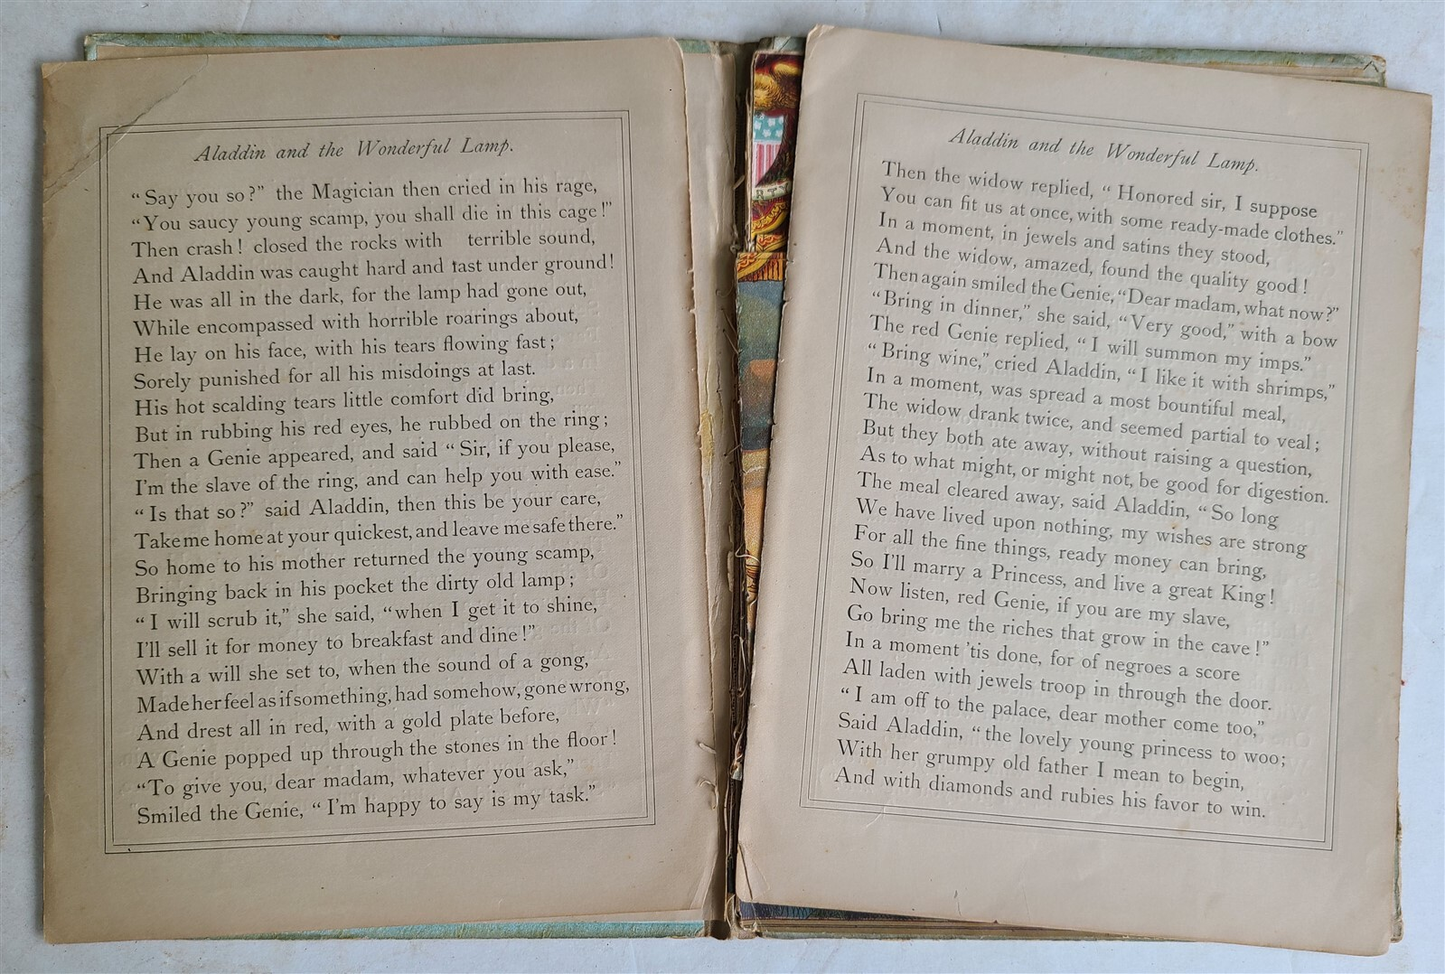 Aladdin and the Wonderful Lamp.
“Say you so?” the Magician then cried in his rage,
“You saucy young scamp, you shall die in this cage!”
Then crash! closed the rocks with terrible sound,
And Aladdin was caught hard and fast under ground!
He was all in the dark, for the lamp had gone out,
While encompassed with horrible roarings about,
He lay on his face, with his tears flowing fast;
Sorely punished for all his misdoings at last.
His hot scalding tears little comfort did bring,
But in rubbing his red eyes, he rubbed on the ring;
Then a Genie appeared, and said “Sir, if you please,
I'm the slave of the ring, and can help you with ease.”
“Is that so?” said Aladdin, then this be your care,
Take me home at your quickest, and leave me safe there.”
So home to his mother returned the young scamp,
Bringing back in his pocket the dirty old lamp;
“I will scrub it,” she said, “when I get it to shine,
I'll sell it for money to breakfast and dine!”
With a will she set to, when the sound of a gong,
Made her feel as if something, had somehow, gone wrong,
And drest all in red, with a gold plate before,
A Genie popped up through the stones in the floor!
“To give you, dear madam, whatever you ask,”
Smiled the Genie, “I'm happy to say is my task.”
Aladdin and the Wonderful Lamp.
Then the widow replied, “Honored sir, I suppose
You can fit us at once, with some ready-made clothes.”
In a moment, in jewels and satins they stood,
And the widow, amazed, found the quality good!
Then again smiled the Genie, “Dear madam, what now?”
“Bring in dinner,” she said, “Very good,” with a bow
The red Genie replied, “I will summon my imps.”
“Bring wine,” cried Aladdin, “I like it with shrimps,”
In a moment, was spread a most bountiful meal,
The widow drank twice, and seemed partial to veal;
But they both ate away, without raising a question,
As to what might, or might not, be good for digestion.
The meal cleared away, said Aladdin, “So long
We have lived upon nothing, my wishes are strong
For all the fine things, ready money can bring,
So I'll marry a Princess, and live a great King!
Now listen, red Genie, if you are my slave,
Go bring me the riches that grow in the cave!”
In a moment 'tis done, for of negroes a score
All laden with jewels troop in through the door.
“I am off to the palace, dear mother come too,”
Said Aladdin, “the lovely young princess to woo;
With her grumpy old father I mean to begin,
And with diamonds and rubies his favor to win.